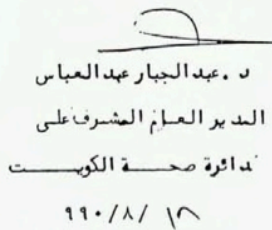 د . عبد الجبار عبد العباس
المدير العام المشرف على
دائرة صحة الكويت
١٨ /٨/٩٩٠